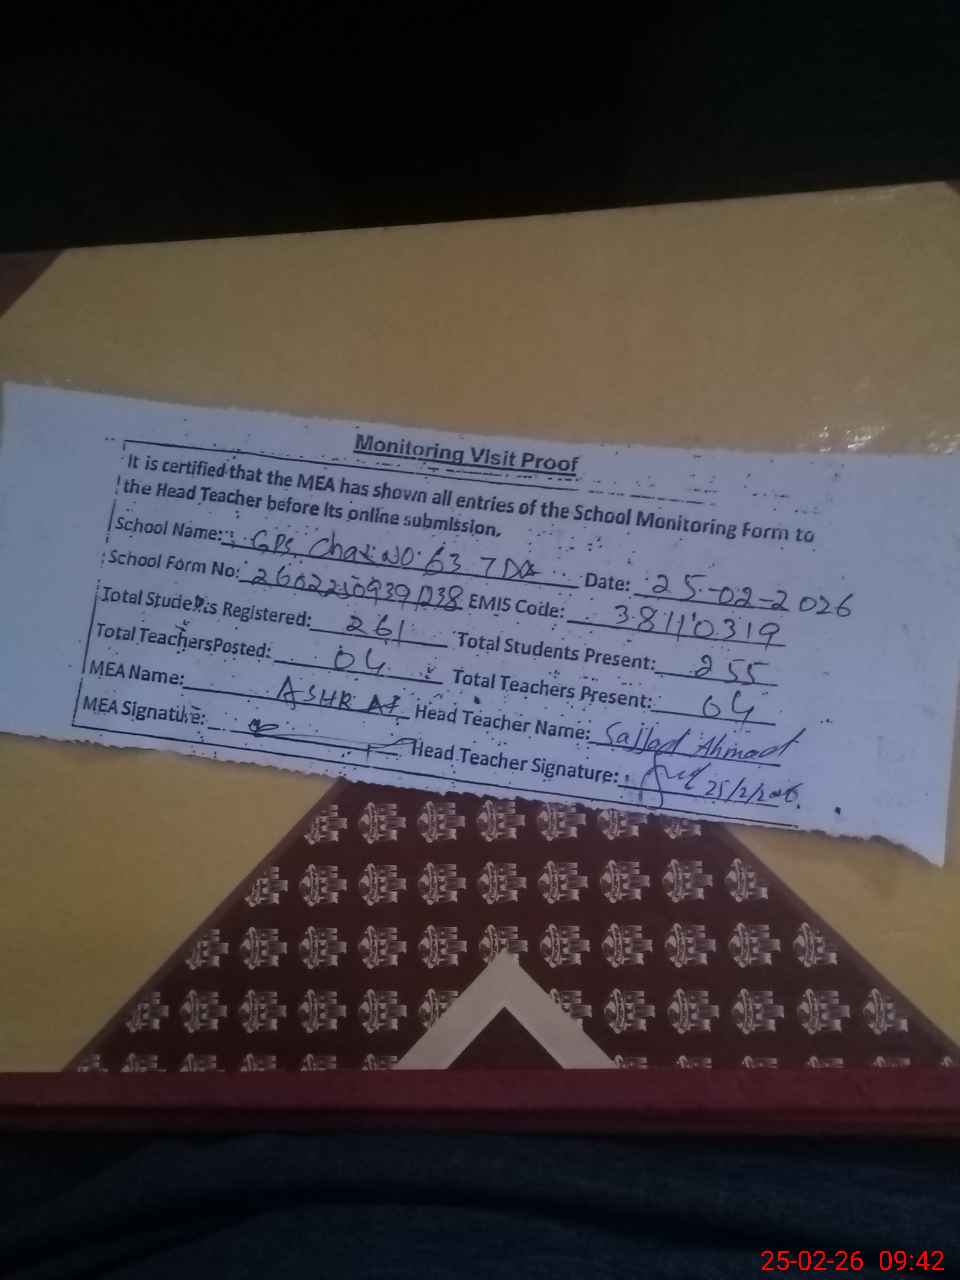 Monitoring Visit Proof
It is certified that the MEA has shown all entries of the School Monitoring Form to
the Head Teacher before its online submission.
School Name: GPS Chak NO 63 TDA Date: 25-02-2026
School Form No: EMIS Code: 38110319
Total Students Registered: 261 Total Students Present: 255
Total Teachers Posted: 04 Total Teachers Present: 04
MEA Name: ASHRAF Head Teacher Name: Sajjad Ahmad
MEA Signature: Head Teacher Signature: 25/2/2026
25-02-26 09:42